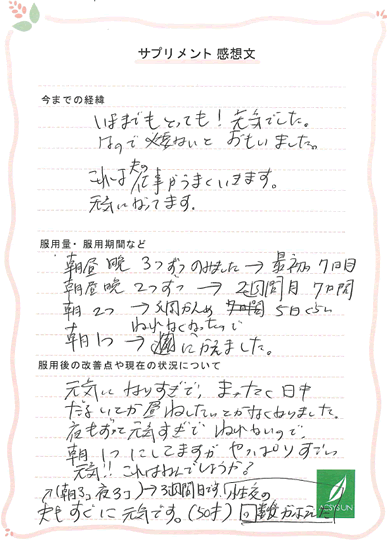 サプリメント 感想文
今までの経緯
いままでもとっても！元気でした。
なので必要ないと おもいました。
これは夫の仕事がうまくいきます。
元気になってます。
服用量・服用期間など
朝昼晩 3つずつのみました→最初の7日目
朝昼晩 2つずつ → 2週間目 7日間
朝 2つ → 3週間め 5日ぐらい
ねれなくなったので
朝1つ → にかえました。
服用後の改善点や現在の状況について
元気になりすぎで、まったく日中
だるいとか昼ねしたいとかなくなりました。
夜もずっと元気すぎで ねれないので、
朝 1つにしてますが やっぱりすごい
元気!! これはなんでしょうか?
(朝3コ 夜3コ)→3週間目です。性交の
夫もすぐに元気です。(50才) 回数がふえた